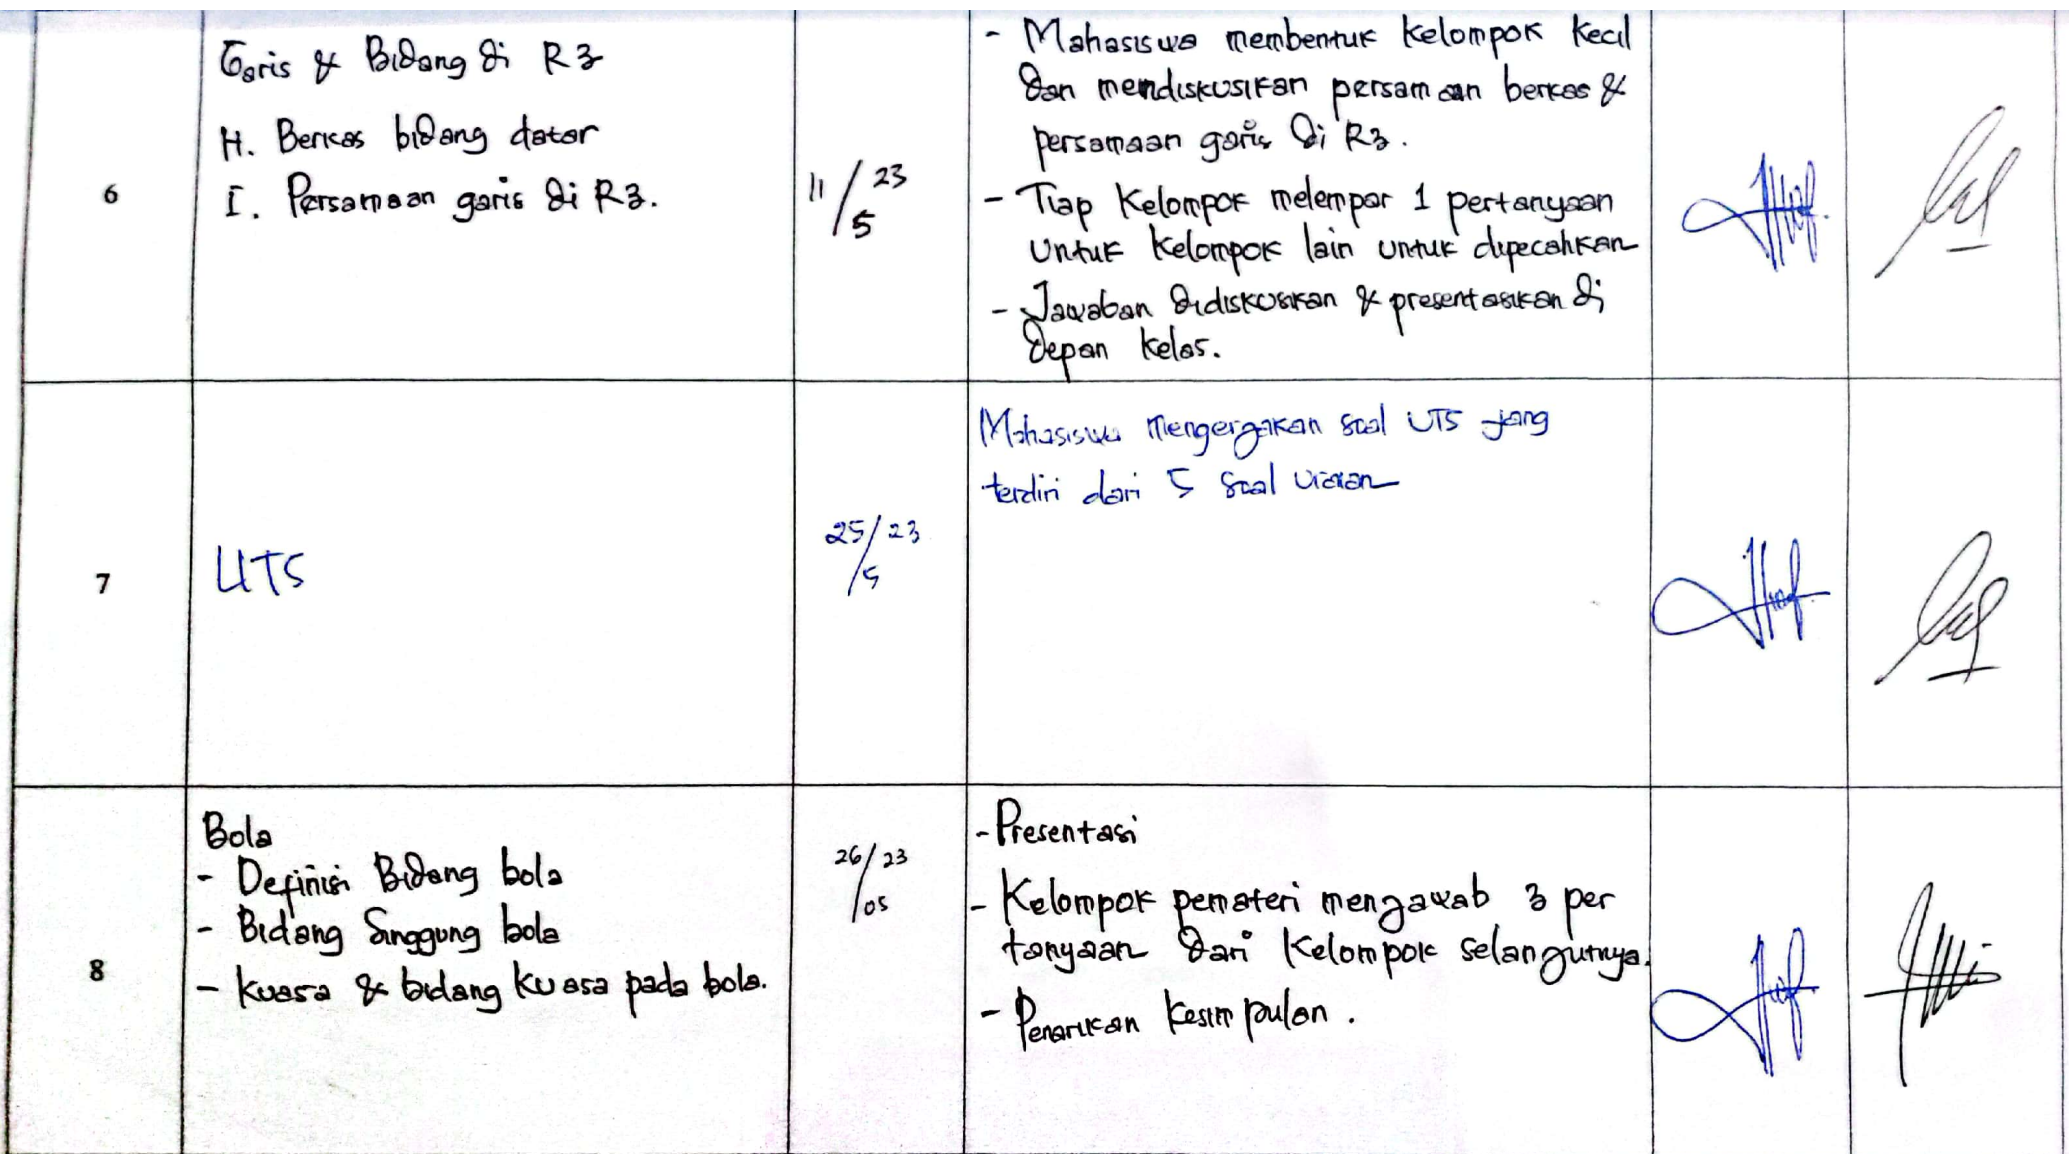 6
Garis & Bidang di R3
H. Berkas bidang datar
I. Persamaan garis di R3.
11/23
/5
- Mahasiswa membentuk kelompok kecil
dan mendiskusikan persamaan berkas &
persamaan garis di R3.
- Tiap kelompok melempar 1 pertanyaan
untuk kelompok lain untuk dipecahkan
- Jawaban didiskusikan & presentasikan di
depan kelas.
7
UTS
25/23
/5
Mahasiswa mengerjakan soal UTS yang
terdiri dari 5 soal uraian
8
Bola
- Definisi Bidang bola
- Bidang Singgung bola
- kuasa & bidang kuasa pada bola.
26/23
/05
- Presentasi
- Kelompok pemateri menjawab 3 per
tanyaan dari kelompok selanjutnya.
- Penarikan kesimpulan.